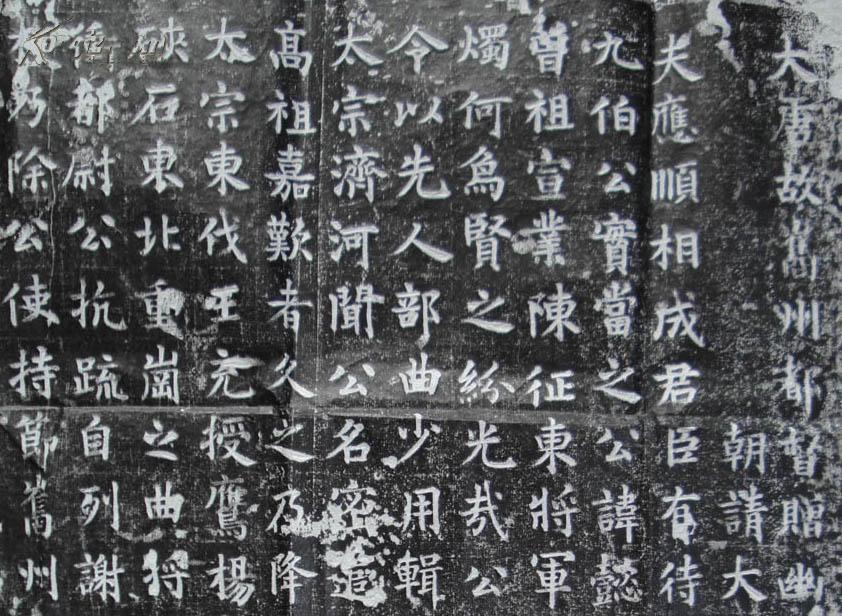 大唐故巂州都督贈幽
朝請大
夫應順相成君臣有待
九伯公實當之公諱懿
曾祖宣業陳征東將軍
燭何為賢之紛光哉公
令以先人部曲少用輯
太宗濟河聞公名密追
高祖嘉歎者久之乃降
太宗東伐王充授鷹楊
硤石東北重崗之曲将
都尉公抗疏自列謝
乃除公使持節巂州